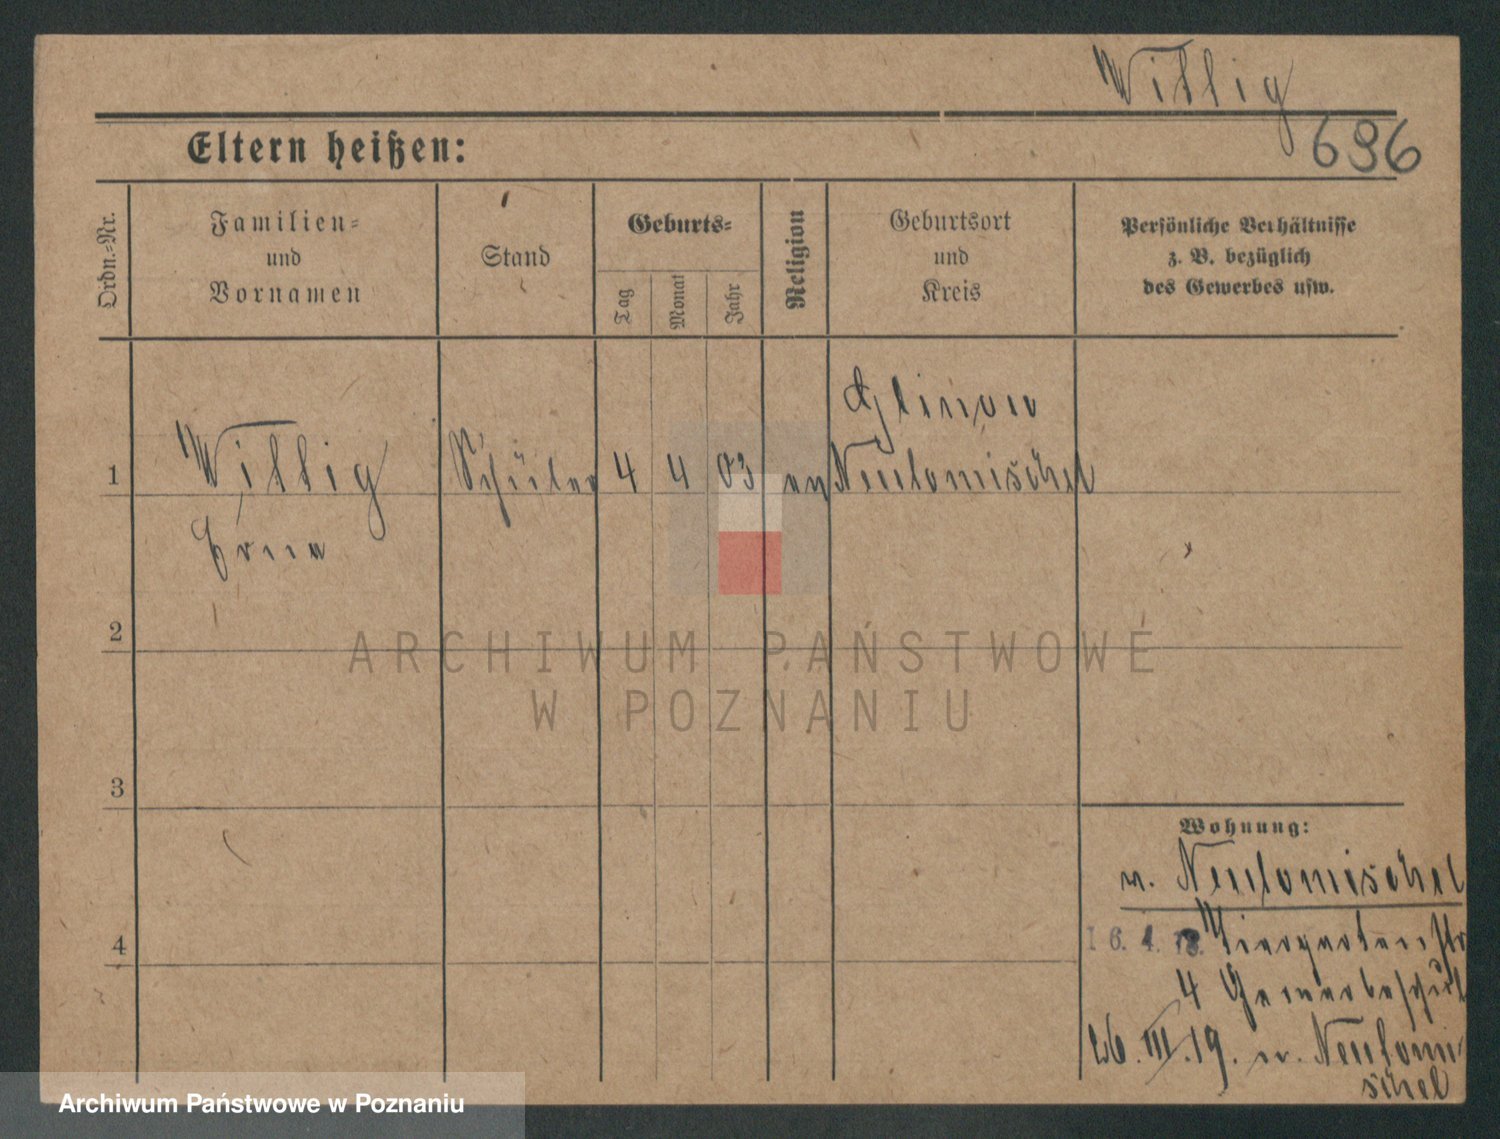 Willig
696
Eltern heißen:
Ordn.-Nr.
Familien-
und
Vornamen
Stand
Geburts-
Tag
Monat
Jahr
Religion
Geburtsort
und
Kreis
Persönliche Verhältnisse
z. B. bezüglich
des Gewerbes usw.
1
Willig
Erna
Schüler
4
4
03
ev
Glinau
Neutomischel
2
3
4
ARCHIWUM PAŃSTWOWE
W POZNANIU
Wohnung:
v. Neutomischel
16. 4. 18. Tiergartenstr
4 Gewerbeschul
26. III. 19. v. Neutomi-
schel
Archiwum Państwowe w Poznaniu